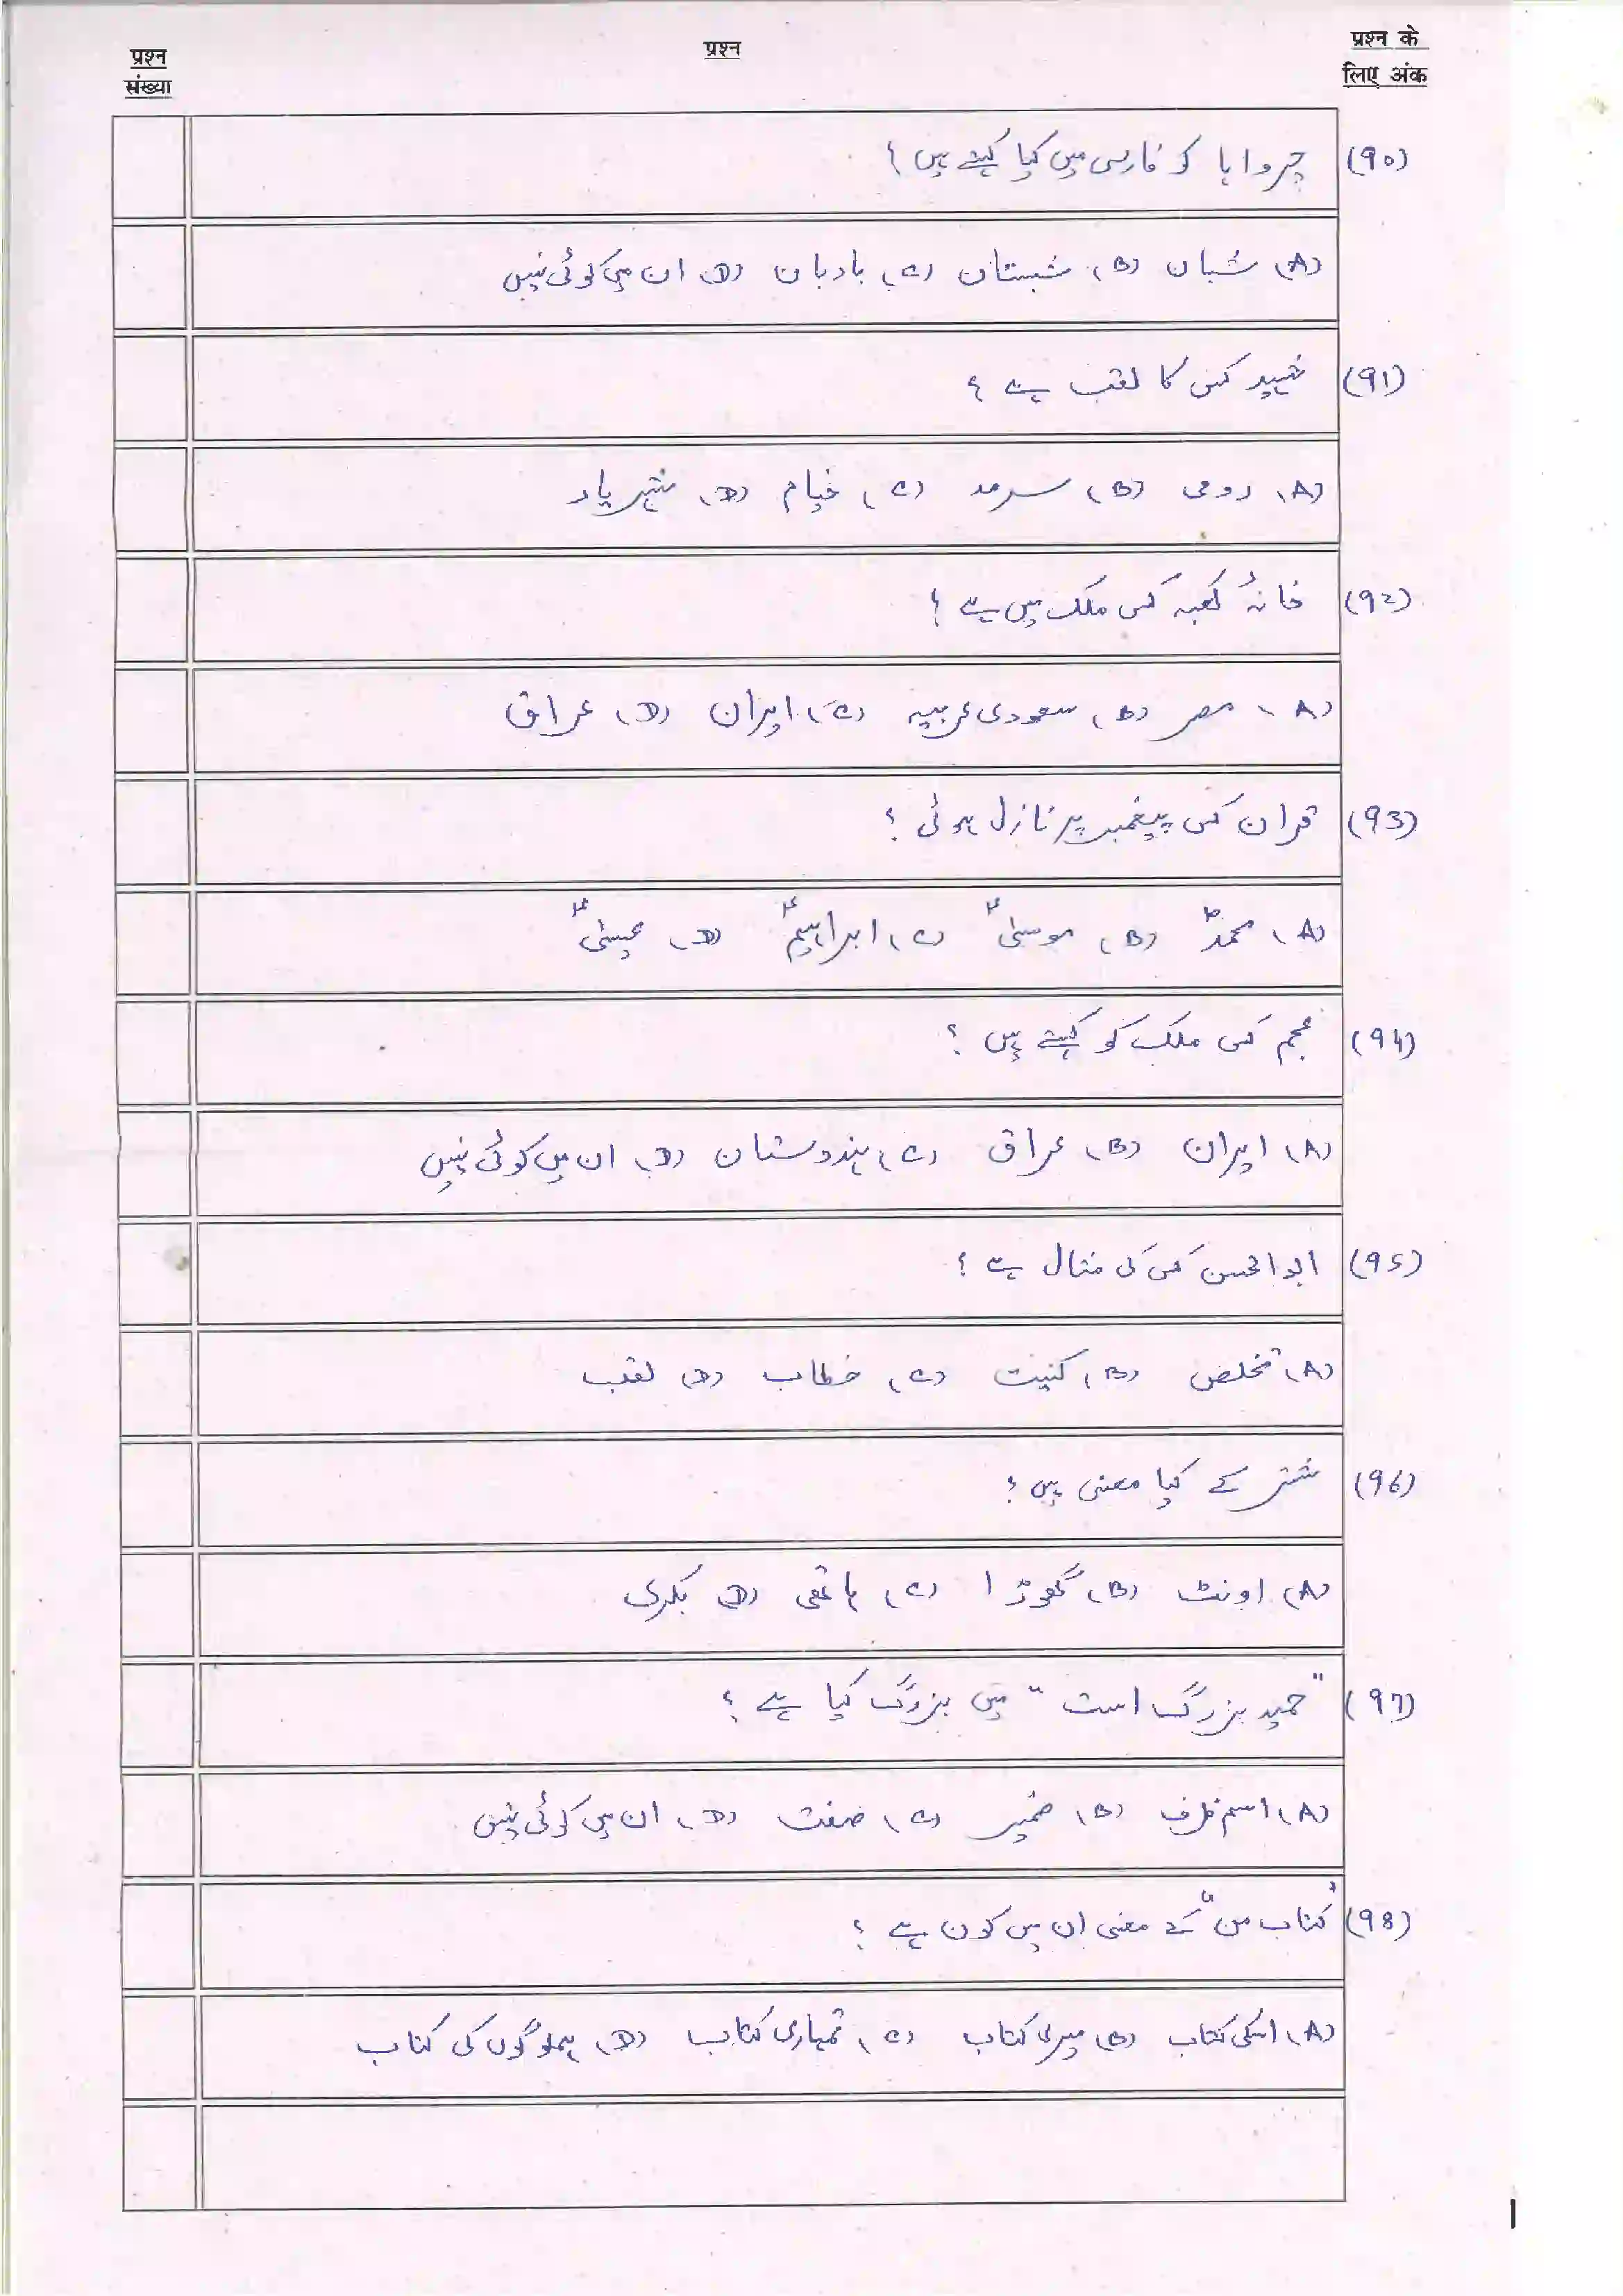 प्रश्न संख्या
प्रश्न
प्रश्न के लिए अंक
(90) چرواہا کو فارسی میں کیا کہتے ہیں ؟
(A) شبان (B) شبستان (C) بادبان (D) ان میں کوئی نہیں
(91) شہید کس کا لقب ہے ؟
(A) رومی (B) سرمد (C) خیام (D) شہریار
(92) خانۂ کعبہ کس ملک میں ہے ؟
(A) مصر (B) سعودی عربیہ (C) ایران (D) عراق
(93) قران کس پیغمبر پر نازل ہوئی ؟
(A) محمدؐ (B) موسیٰؑ (C) ابراہیمؑ (D) عیسیٰؑ
(94) عجم کس ملک کو کہتے ہیں ؟
(A) ایران (B) عراق (C) ہندوستان (D) ان میں کوئی نہیں
(95) ابوالحسن کس کی مثال ہے ؟
(A) تخلص (B) کنیت (C) خطاب (D) لقب
(96) شتر کے کیا معنی ہیں ؟
(A) اونٹ (B) گھوڑا (C) ہاتھی (D) بکری
(97) "حمید بزرگ است" میں بزرگ کیا ہے ؟
(A) اسم ظرف (B) ضمیر (C) صفت (D) ان میں کوئی نہیں
(98) "کتاب من" کے معنی ان میں کون ہے ؟
(A) اسکی کتاب (B) میری کتاب (C) تمہاری کتاب (D) ہملوگوں کی کتاب